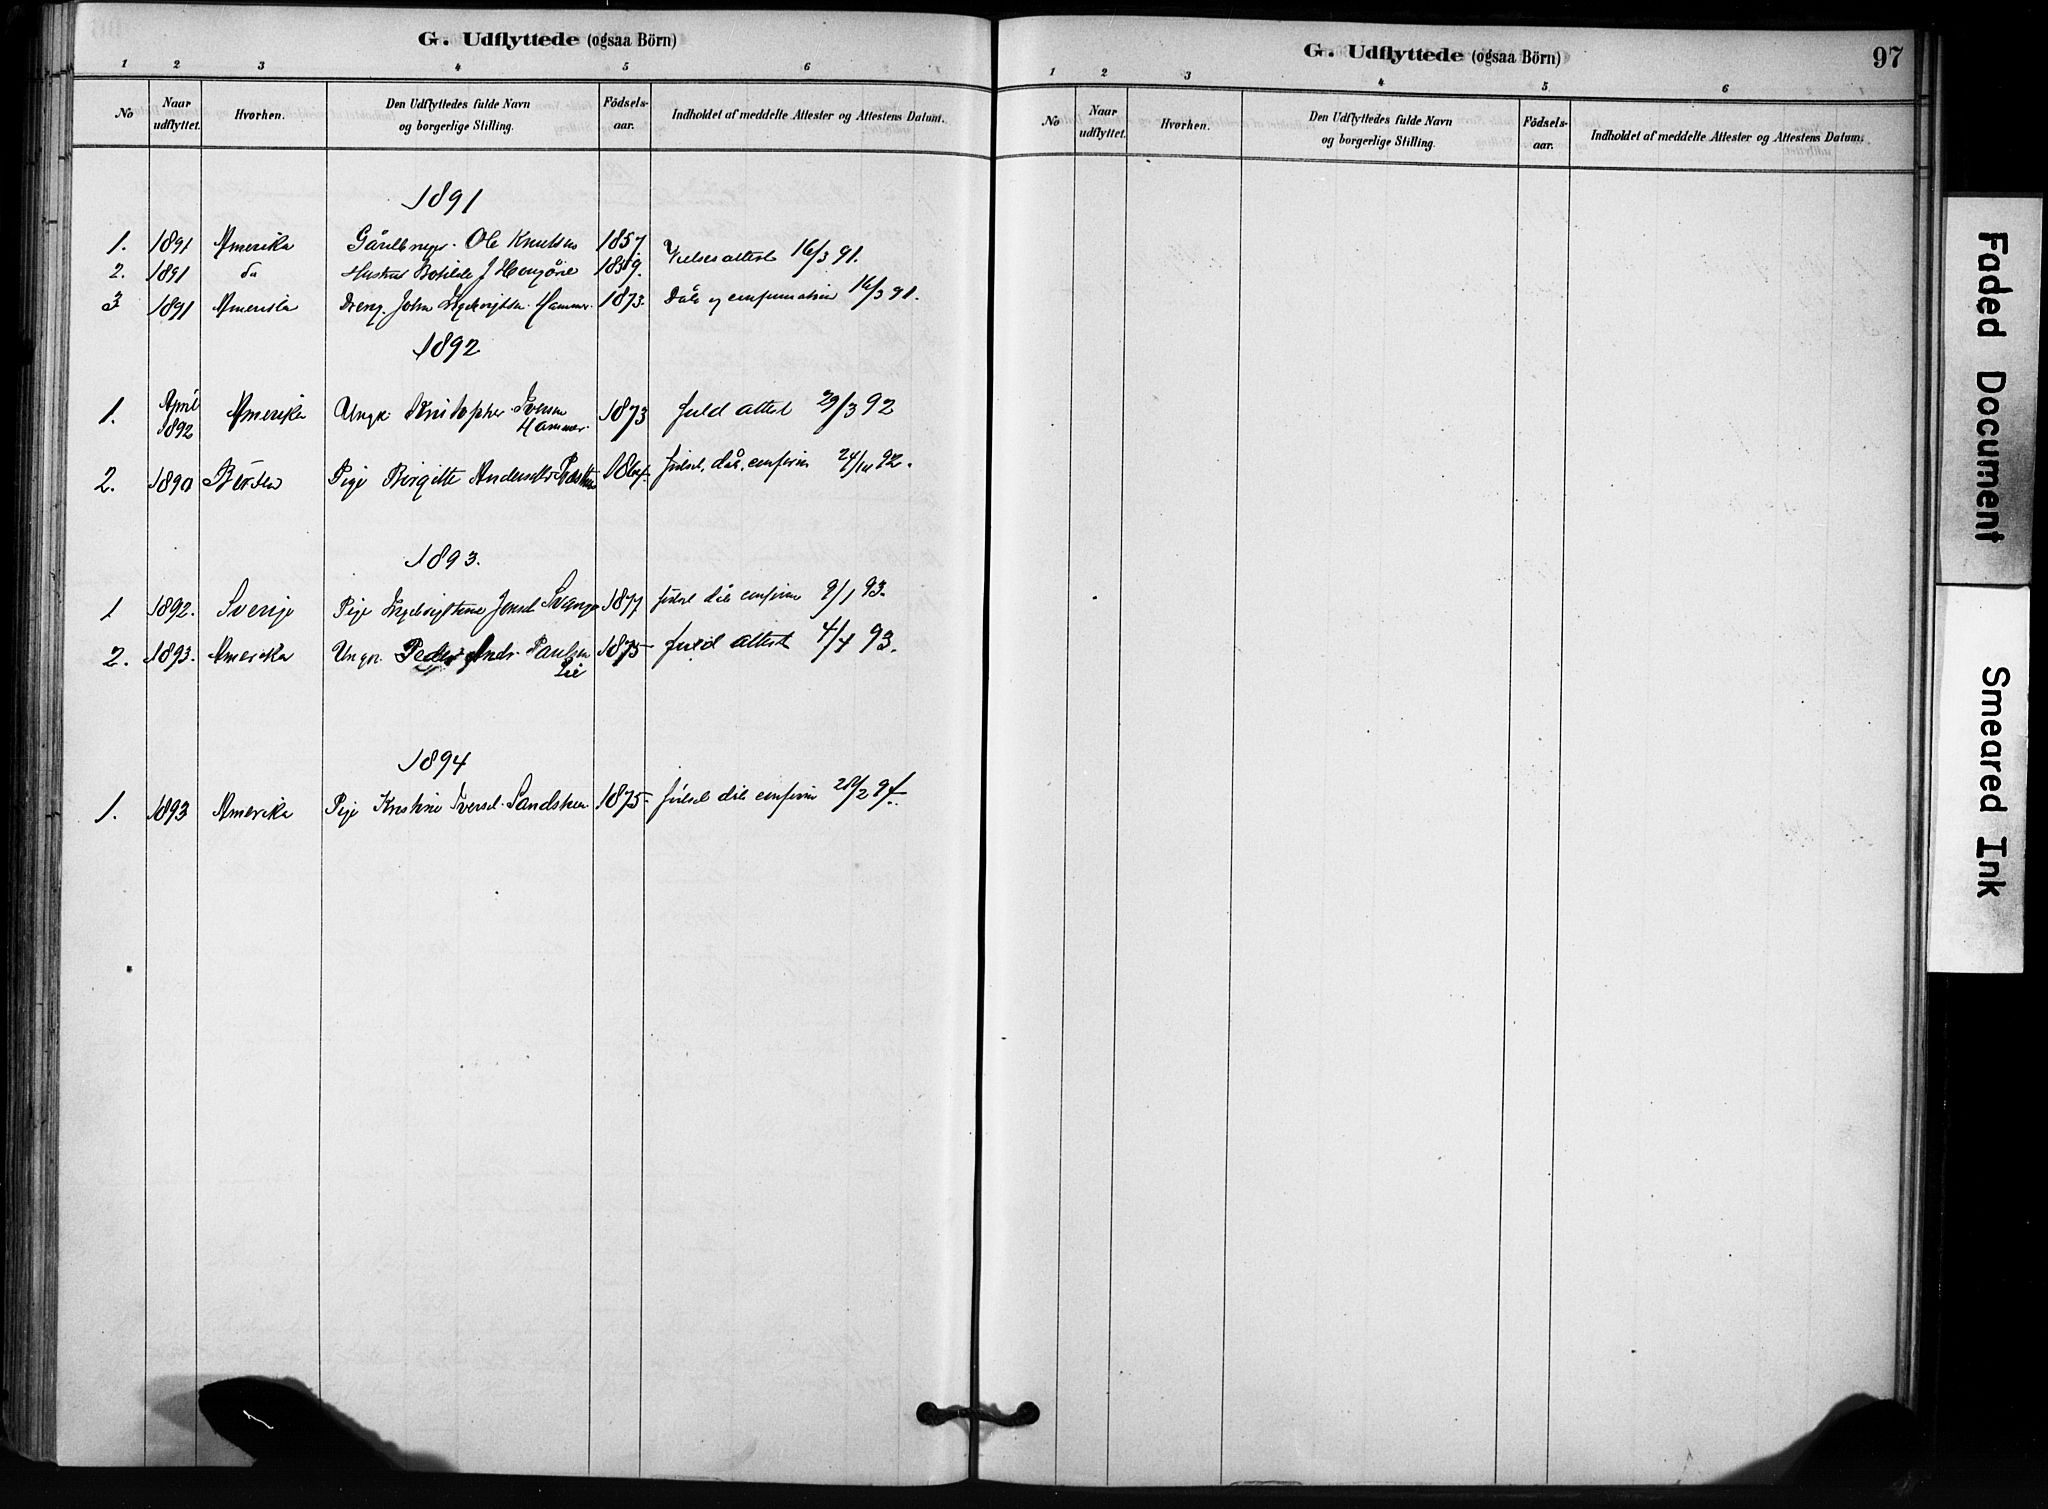 G. Udflyttede (ogsaa Börn)
1 2 3 4 5 6
No Naar udflyttet. Hvorhen. Den Udflyttedes fulde Navn og borgerlige Stilling. Födsels-aar. Indholdet af meddelte Attester og Attestens Datum.
1891
1. 1891 Amerika Ole Knutsen 1857
2. 1891 do Hustru Botilde J 18
Vielsesattest 16/3 91.
3 1891 Amerika Dreng. John Hammer. 1873. Dåb og confirmation 16/3 91.
1892
1. April 1892 Amerika Ungk. Kristopher Iversen Hammer. 1873 fuld attest 29/3 92
2. 1890 Pige Birgitte födsel, dåb, confirm 92.
1893.
1 1892. Sverige Pige Jonsd. 1877 födsel dåb confirm 9/1 93.
2. 1893. Amerika Ungk. Peder Andr. Paulsen Lie 1875 fuld attest 4/4 93.
1894
1. 1893 Amerika Pige Kristine Iversd. 1875. födsel dåb confirm 28/2 94.
G. Udflyttede (ogsaa Börn)
97
1 2 3 4 5 6
No Naar udflyttet. Hvorhen. Den Udflyttedes fulde Navn og borgerlige Stilling. Födsels-aar. Indholdet af meddelte Attester og Attestens Datum.
Faded Document
Smeared Ink